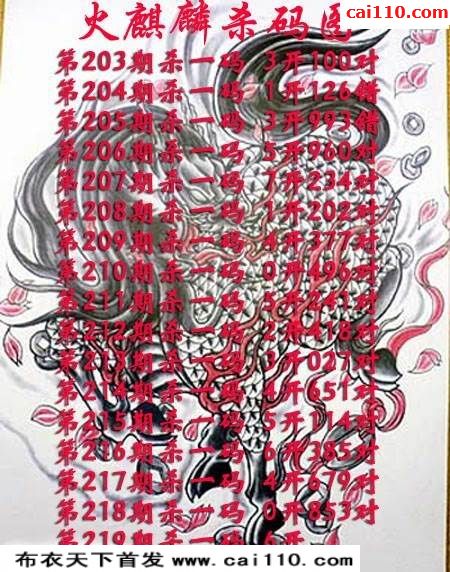 cai110.com
火麒麟杀码区
第203期杀一码 3开100对
第204期杀一码 1开126错
第205期杀一码 3开993错
第206期杀一码 5开960对
第207期杀一码 7开234对
第208期杀一码 1开202对
第209期杀一码 4开377对
第210期杀一码 0开496对
第211期杀一码 5开241对
第212期杀一码 2开418对
第213期杀一码 3开027对
第214期杀一码 4开651对
第215期杀一码 5开114对
第216期杀一码 6开385对
第217期杀一码 4开679对
第218期杀一码 0开853对
第219期杀一码 6开
布衣天下首发 www.cai110.com